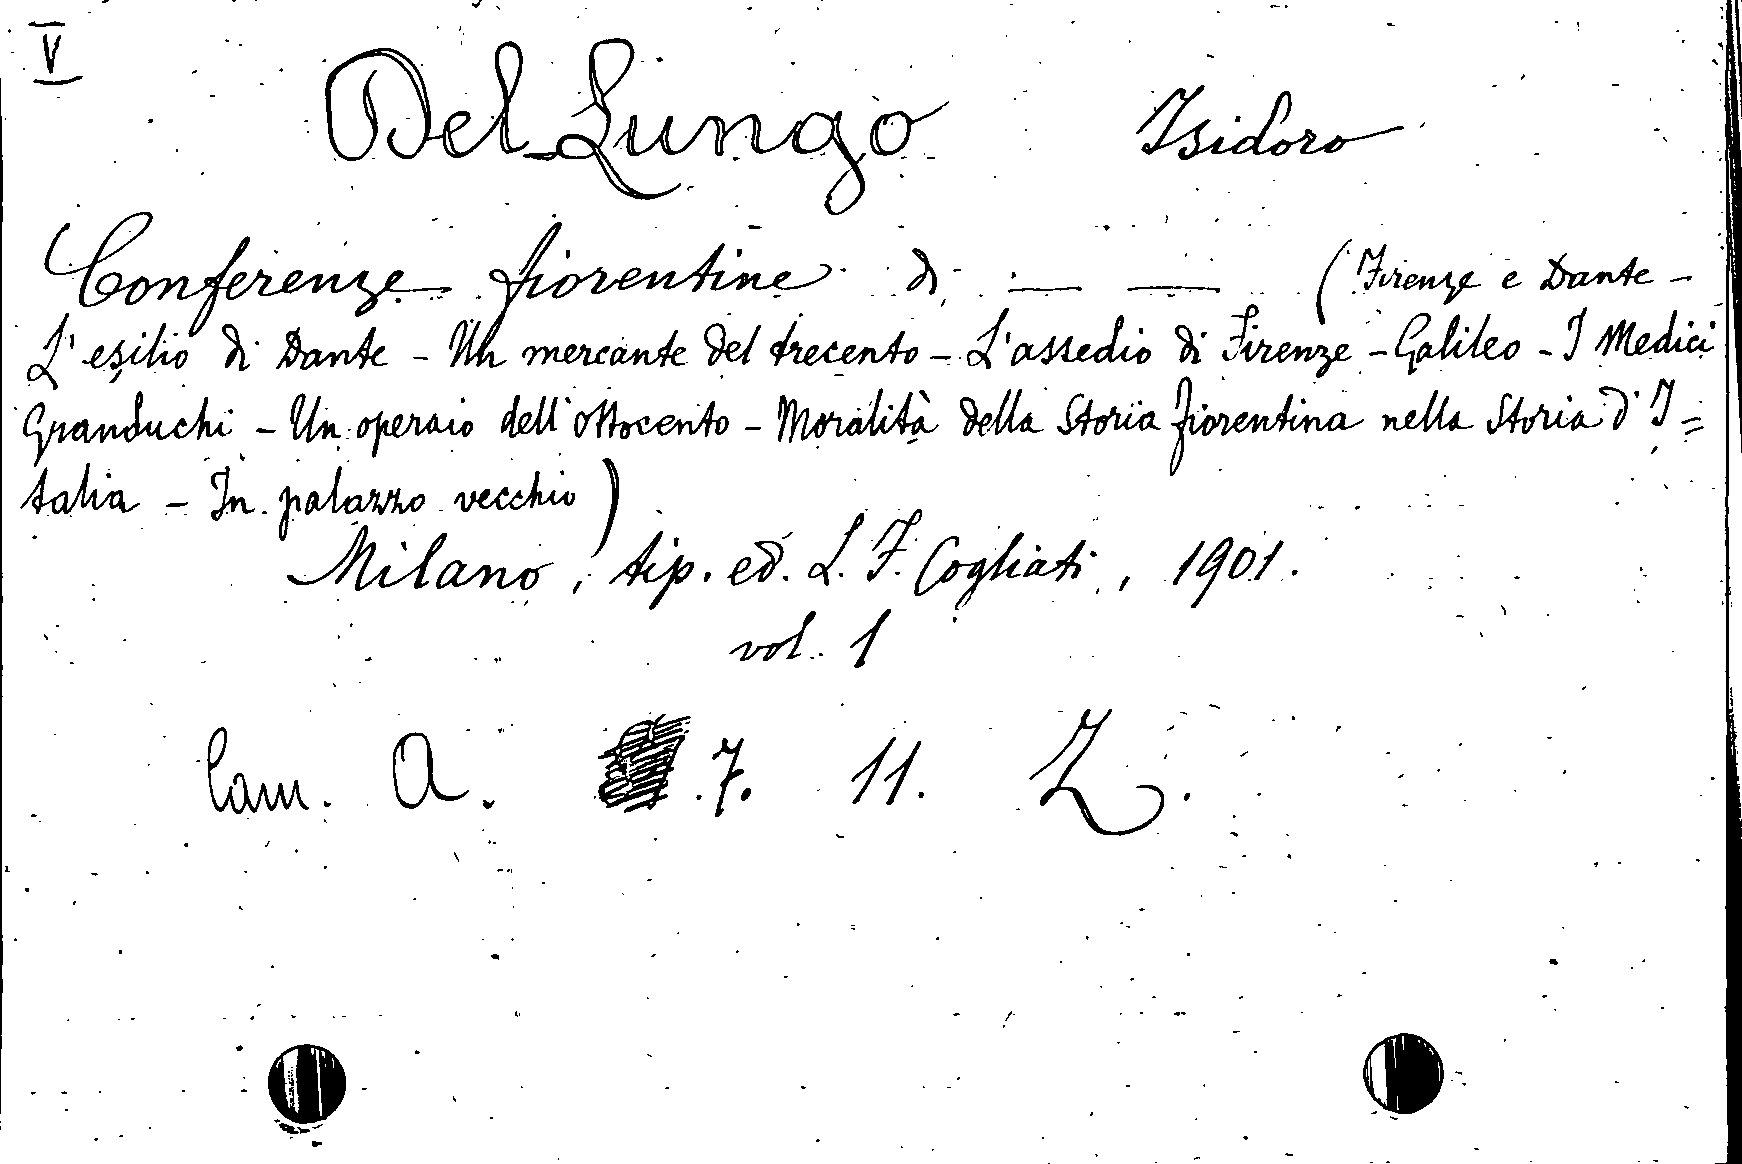 V
Del Lungo Isidoro
Conferenze fiorentine di — — (Firenze e Dante –
L'esilio di Dante – Un mercante del trecento – L'assedio di Firenze – Galileo – I Medici
Granduchi – Un operaio dell'ottocento – Moralità della Storia fiorentina nella Storia d'I=
talia – In palazzo vecchio)
Milano, tip. ed. L. F. Cogliati, 1901.
vol. 1
Cam. A. 7. 11. Z.